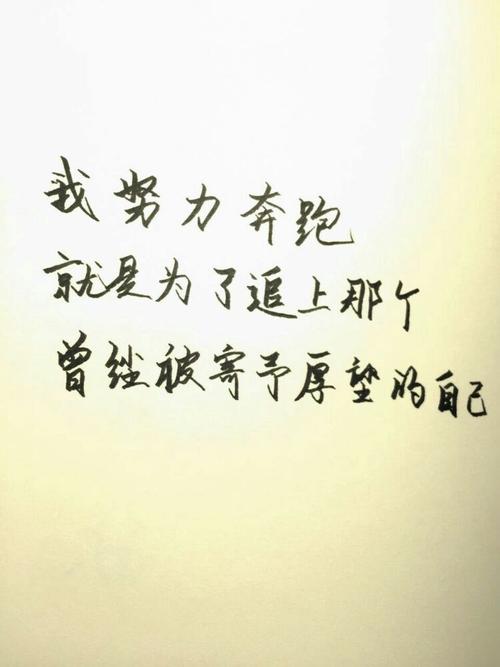 我努力奔跑
就是为了追上那个
曾经被寄予厚望的自己